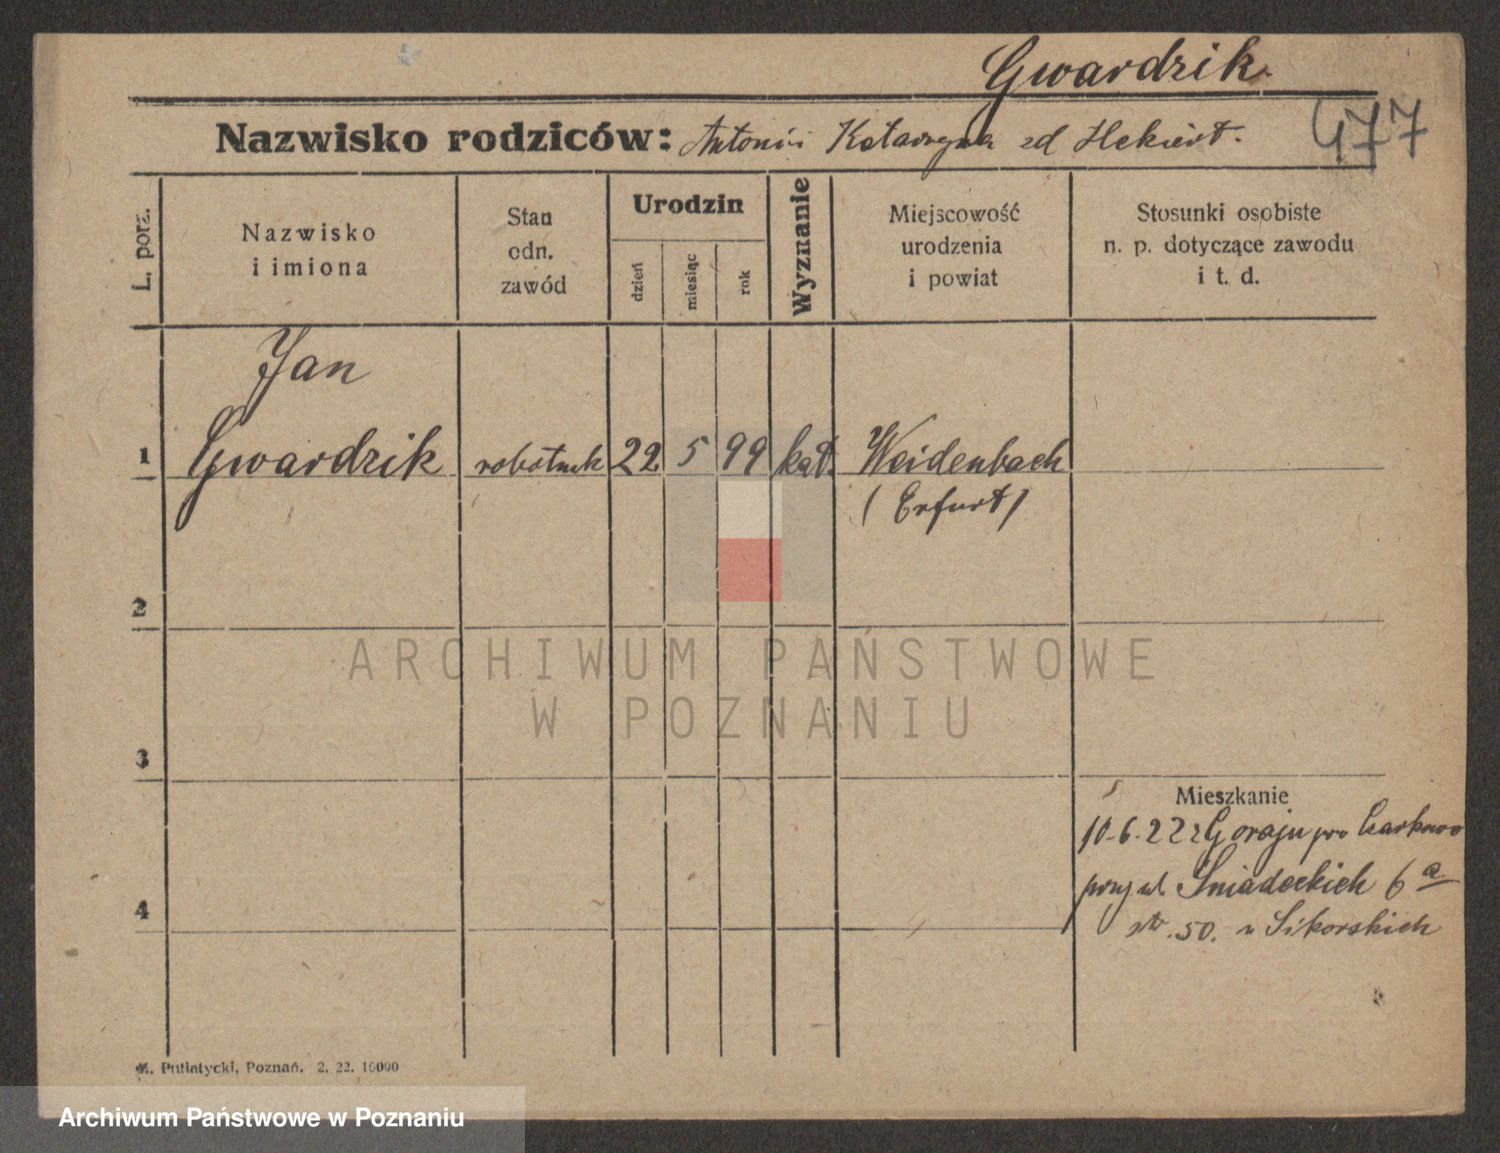 Gwardzik
477
Nazwisko rodziców: Antoni i Katarzyna zd Hekiert.
L. porz.
Nazwisko
i imiona
Stan
odn.
zawód
Urodzin
dzień
miesiąc
rok
Wyznanie
Miejscowość
urodzenia
i powiat
Stosunki osobiste
n. p. dotyczące zawodu
i t. d.
Jan
1 Gwardzik robotnik 22 5 99 kat. Weidenbach
(Erfurt)
2
ARCHIWUM PAŃSTWOWE
W POZNANIU
3
Mieszkanie
10-6-22 z Goraju pow Czarkowo
ul Śniadeckich 6a
50. u Sikorskich
4
M. Putiatycki, Poznań. 2. 22. 10000
Archiwum Państwowe w Poznaniu